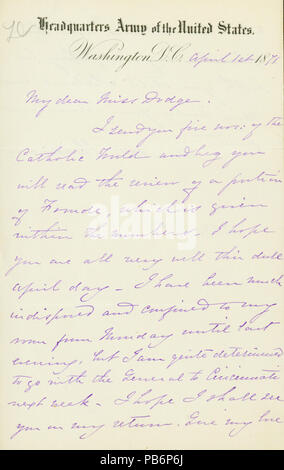 Headquarters Army of the United States.
Washington, D.C. April 1st 1871
My dear Miss Dodge.
I send you five nos: of the
Catholic World and beg you
will read the review of a portion
of Froude, which is given
within the numbers. I hope
you are all very well this dull
April day - I have been much
indisposed and confined to my
room from Monday until last
evening, but I am quite determined
to go with the General to Cincinnati
next week - I hope I shall see
you on my return. Give my love
alamy
Image ID: PB6P6J
www.alamy.com